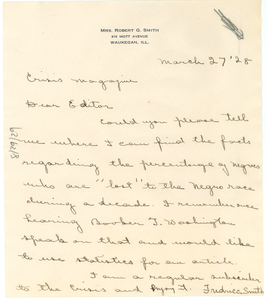 MRS. ROBERT G. SMITH
WAUKEGAN, ILL.
March 27 '28
Crisis magazine
Dear Editor
Could you please tell
me where I can find the facts
regarding the percentage of Negroes
who are "lost" to the Negro race
during a decade. I remember once
hearing Booker T. Washington
speak on that and would like
to use statistics for an article.
I am a regular subscriber
to the Crisis and Smith